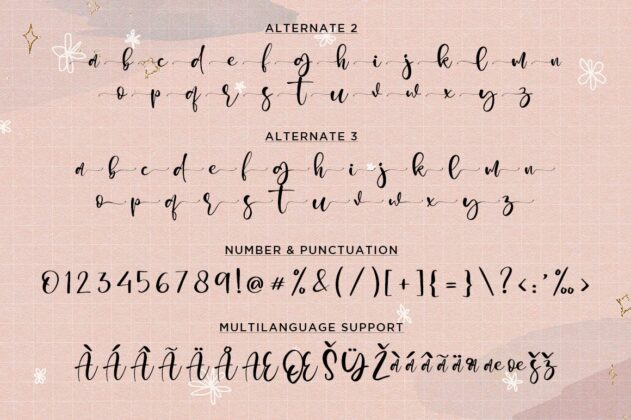 ALTERNATE 2
a b c d e f g h i j k l m n
o p q r s t u v w x y z
ALTERNATE 3
a b c d e f g h i j k l m n
o p q r s t u v w x y z
NUMBER & PUNCTUATION
0123456789!@#%&(/)[+]{=}\?<:'‰>
MULTILANGUAGE SUPPORT
ÀÁÂÃÄÅÆŒŠŸŽàáâãäåæœšž